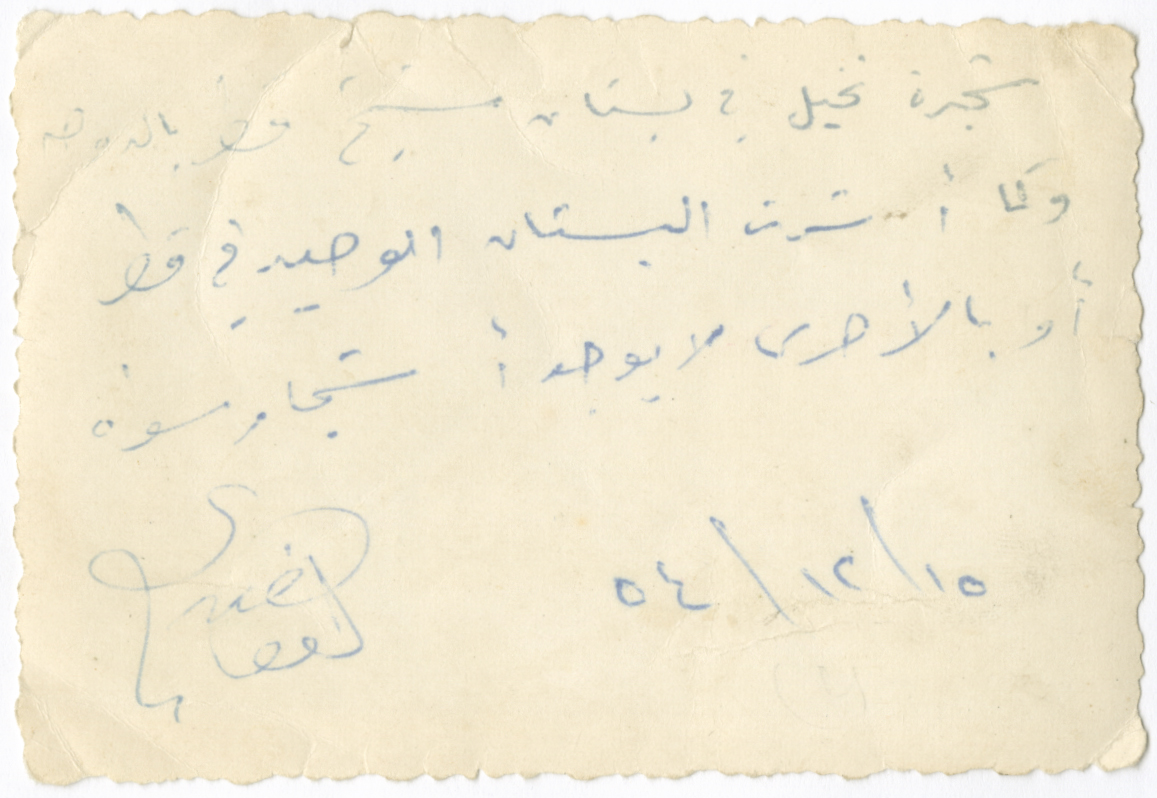 شجرة نخيل في بستان شيخ قطر بالدوحة
وكما أشرت البستان الوحيد في قطر
أو بالأحرى لا يوجد أشجار سواه
١٥/١٢/٥٤